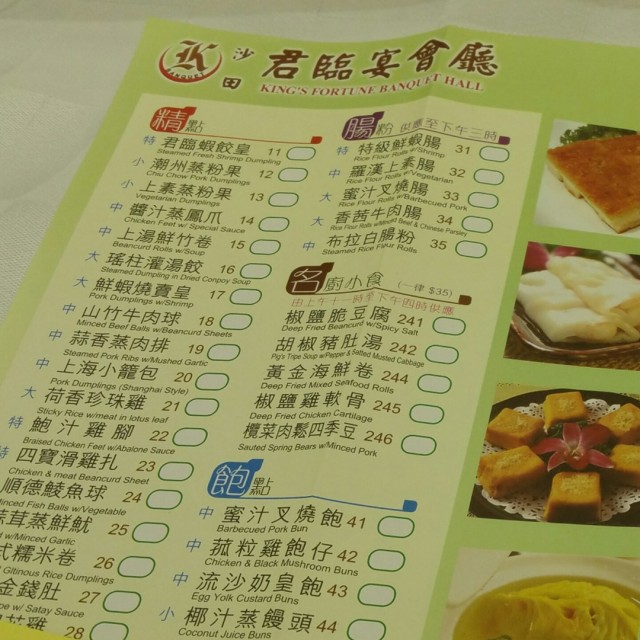 K
BANQUET
沙田
君臨宴會廳
KING'S FORTUNE BANQUET HALL
精點
特 君臨蝦餃皇 11
Steamed Fresh Shrimp Dumpling
小 潮州蒸粉果 12
Chiu Chow Pork Dumplings
小 上素蒸粉果 13
Vegetarian Dumplings
中 醬汁蒸鳳爪 14
Chicken Feet w/ Special Sauce
中 上湯鮮竹卷 15
Beancurd Rolls w/Soup
大 瑤柱灌湯餃 16
Steamed Dumpling in Dried Conpoy Soup
大 鮮蝦燒賣皇 17
Pork Dumplings w/Shrimp
中 山竹牛肉球 18
Minced Beef Balls w/Beancurd Sheets
中 蒜香蒸肉排 19
Steamed Pork Ribs w/Mushed Garlic
中 上海小籠包 20
Pork Dumplings (Shanghai Style)
大 荷香珍珠雞 21
Sticky Rice w/meat in lotus leaf
特 鮑汁雞腳 22
Braised Chicken Feet w/Abalone Sauce
特 四寶滑雞扎 23
Chicken & meat Beancurd Sheet
順德鯪魚球 24
Minced Fish Balls w/Vegetable
蒜茸蒸鮮魷 25
w/Minced Garlic
式糯米卷 26
Gltinous Rice Dumplings
金錢肚 27
w/ Satay Sauce
28
腸粉 供應至下午三時
特 特級鮮蝦腸 31
Rice Flour Rolls w/Shrimp
中 羅漢上素腸 32
Rice Flour Rolls w/Vegetarian
大 蜜汁叉燒腸 33
Rice Flour Rolls w/Barbecued Pork
大 香茜牛肉腸 34
Rice Flour Rolls w/Minced Beef & Chinese Parsley
中 布拉白腸粉 35
Rice Flour Rolls
名廚小食 (一律 $35)
由上午十一時至下午四時供應
椒鹽脆豆腐 241
Deep Fried Beancurd w/Spicy Salt
胡椒豬肚湯 242
Pig's Tripe Soup w/Pepper & Salted Musted Cabbage
黃金海鮮卷 244
Deep Fried Mixed Seafood Rolls
椒鹽雞軟骨 245
Deep Fried Chicken Cartilage
欖菜肉鬆四季豆 246
Sauted Spring Bears w/Minced Pork
飽點
中 蜜汁叉燒飽 41
Barbecued Pork Bun
中 菰粒雞飽仔 42
Chicken & Black Mushroom Buns
中 流沙奶皇飽 43
Egg Yolk Custard Buns
小 椰汁蒸饅頭 44
Coconut Juice Buns